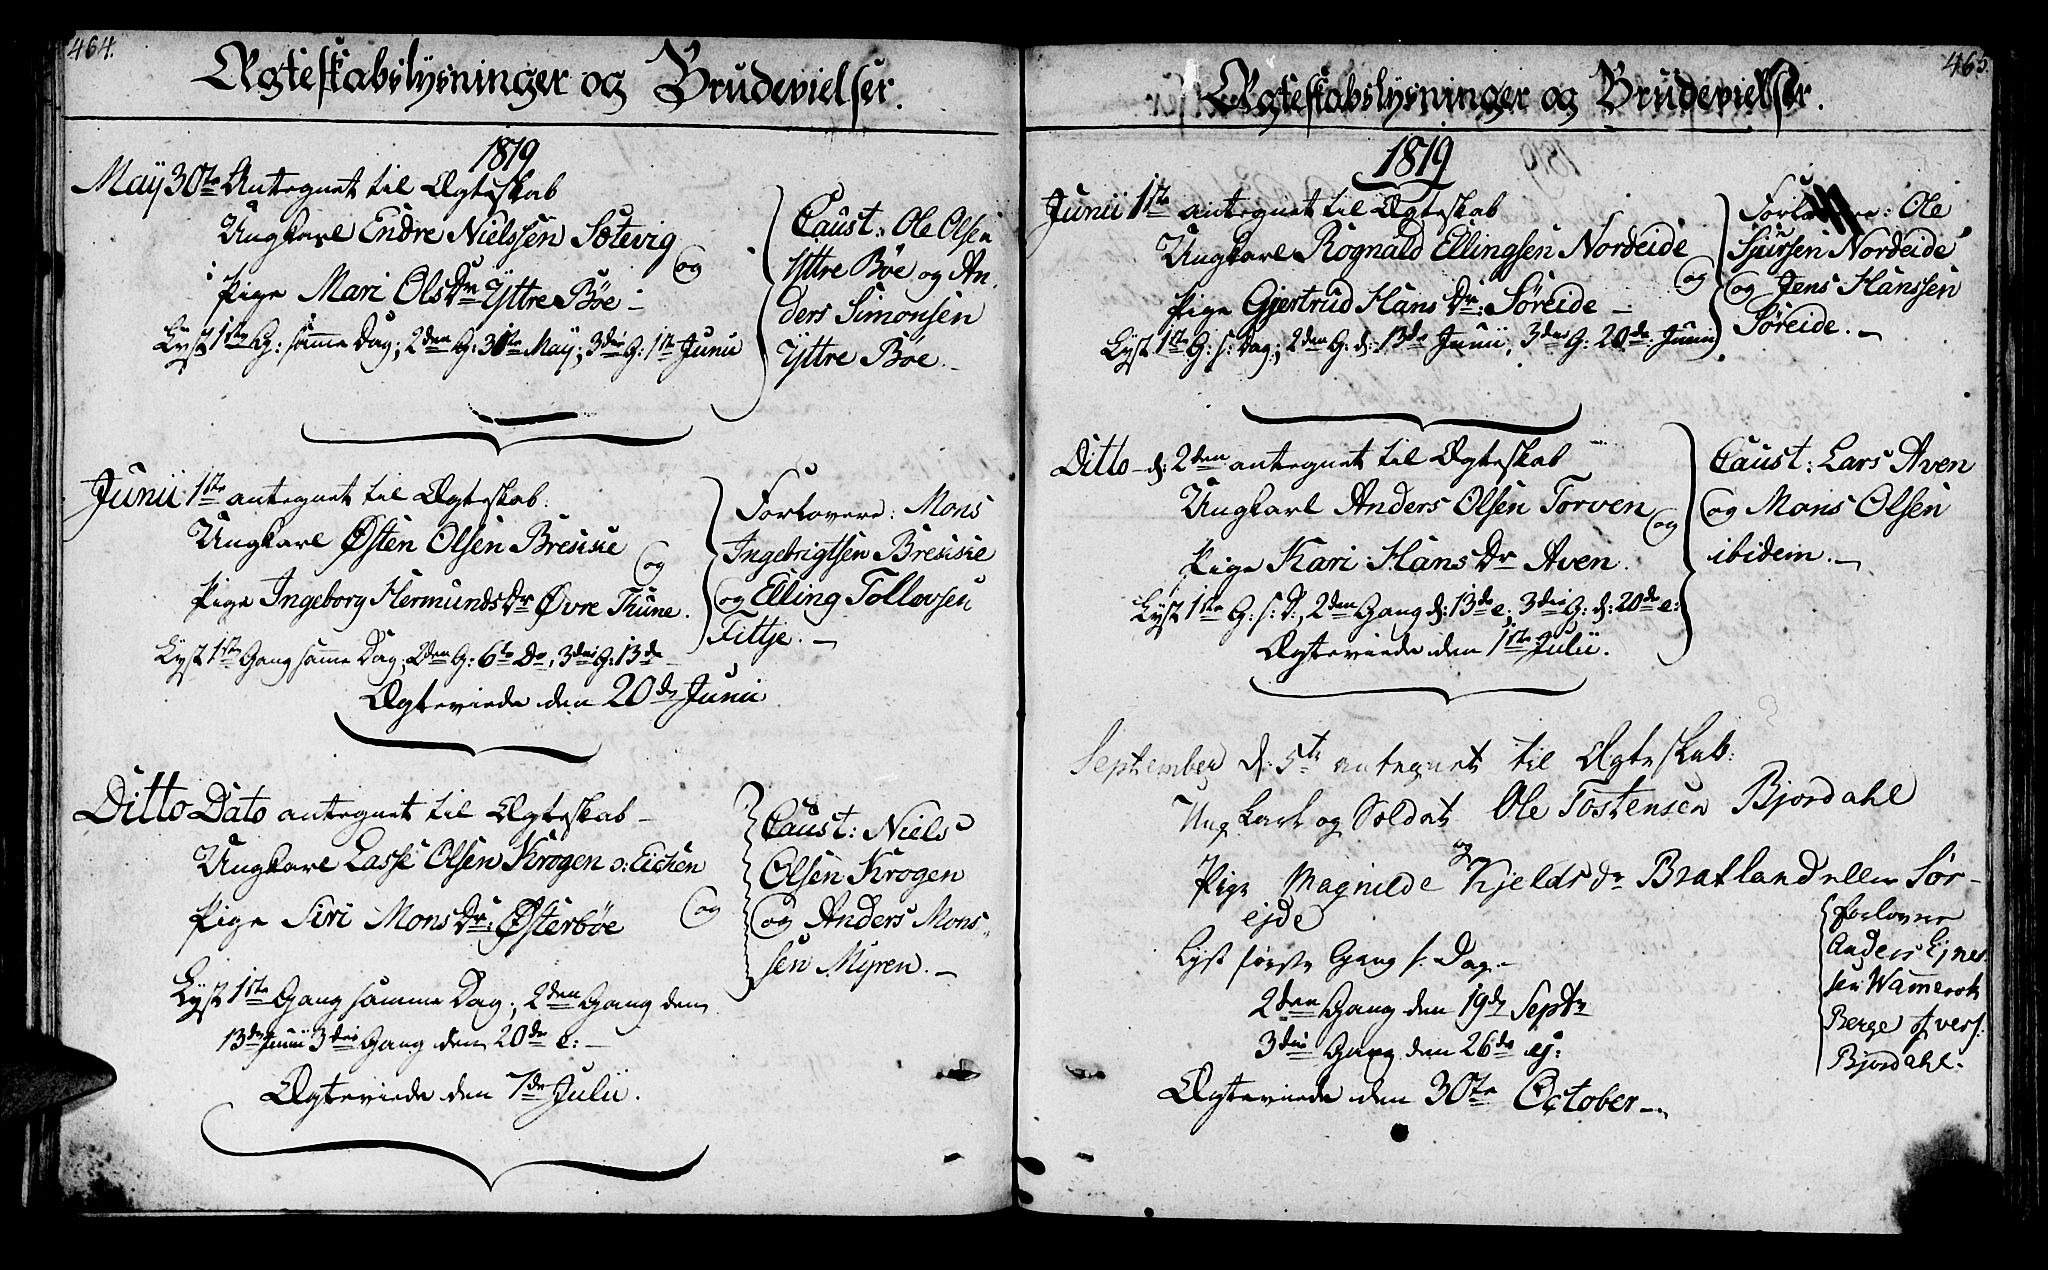 464.
Ægteskabslysninger og Brudevielser.
1819
May 30te Antegnet til Ægteskab
Ungkarl Endre Nielssen Sætevig
og
Pige Mari Ols Dr Yttre Bøe
Lyst 1ste G: samme Dag; 2den G: 31te May; 3die G: 1ste Junii
Caust: Ole Olsen
Yttre Bøe og An-
ders Simonsen
Yttre Bøe.
Junii 1ste antegnet til Ægteskab:
Ungkarl Østen Olsen Bresisie
og
Pige Ingeborg Hermunds Dr Øvre Thune.
Lyst 1ste Gang samme Dag; 2den G: 6te Do, 3die G: 13de
Ægteviede den 20de Junii
Forlovere: Mons
Ingebrigtsen Bresisie
og Elling Tollevsen
Fittje.
Ditto Dato antegnet til Ægteskab
Ungkarl Lasse Olsen Krogen o: Eichen
og
Pige Siri Mons Dr: Østerbøe
Lyst 1ste Gang samme Dag; 2den Gang den
13de Junii 3die Gang den 20de e:
Ægteviede den 7de Julii.
Caust: Niels
Olsen Krogen
og Anders Mons-
sen Myren.
465.
Ægteskabslysninger og Brudevielser.
1819
Junii 1ste antegnet til Ægteskab
Ungkarl Rognald Ellingsen Nordeide
og
Pige Gjertrud Hans Dr: Søreide
Lyst 1ste G. s: Dag; 2den G: d: 13de Junii, 3die G: 20de Junii
Forlovere: Ole
Sjursen Nordeide
og Jens Hanssen
Søreide.
Ditto d: 2den antegnet til Ægteskab
Ungkarl Anders Olsen Torven
og
Pige Kari Hans Dr Aven.
Lyst 1ste G: s: D:, 2den Gang d: 13de e; 3die G: d: 20de e:
Ægteviede den 1ste Julii.
Caust: Lars Aven
og Mons Olsen
ibidem.
September d. 5te antegnet til Ægteskab:
Ungkarl og Soldat Ole Tostensen Bjordahl
og
Pige Magnilde Kjelds Dr Bratland eller Sør-
ejde
Lyst første Gang s. Dag
2den Gang den 19de Septr
3die Gang den 26de ej:
Ægteviede den 30te October
Forlovere
Anders Ejnes
sen Wamerok
Berge Sivers.
Bjordahl.